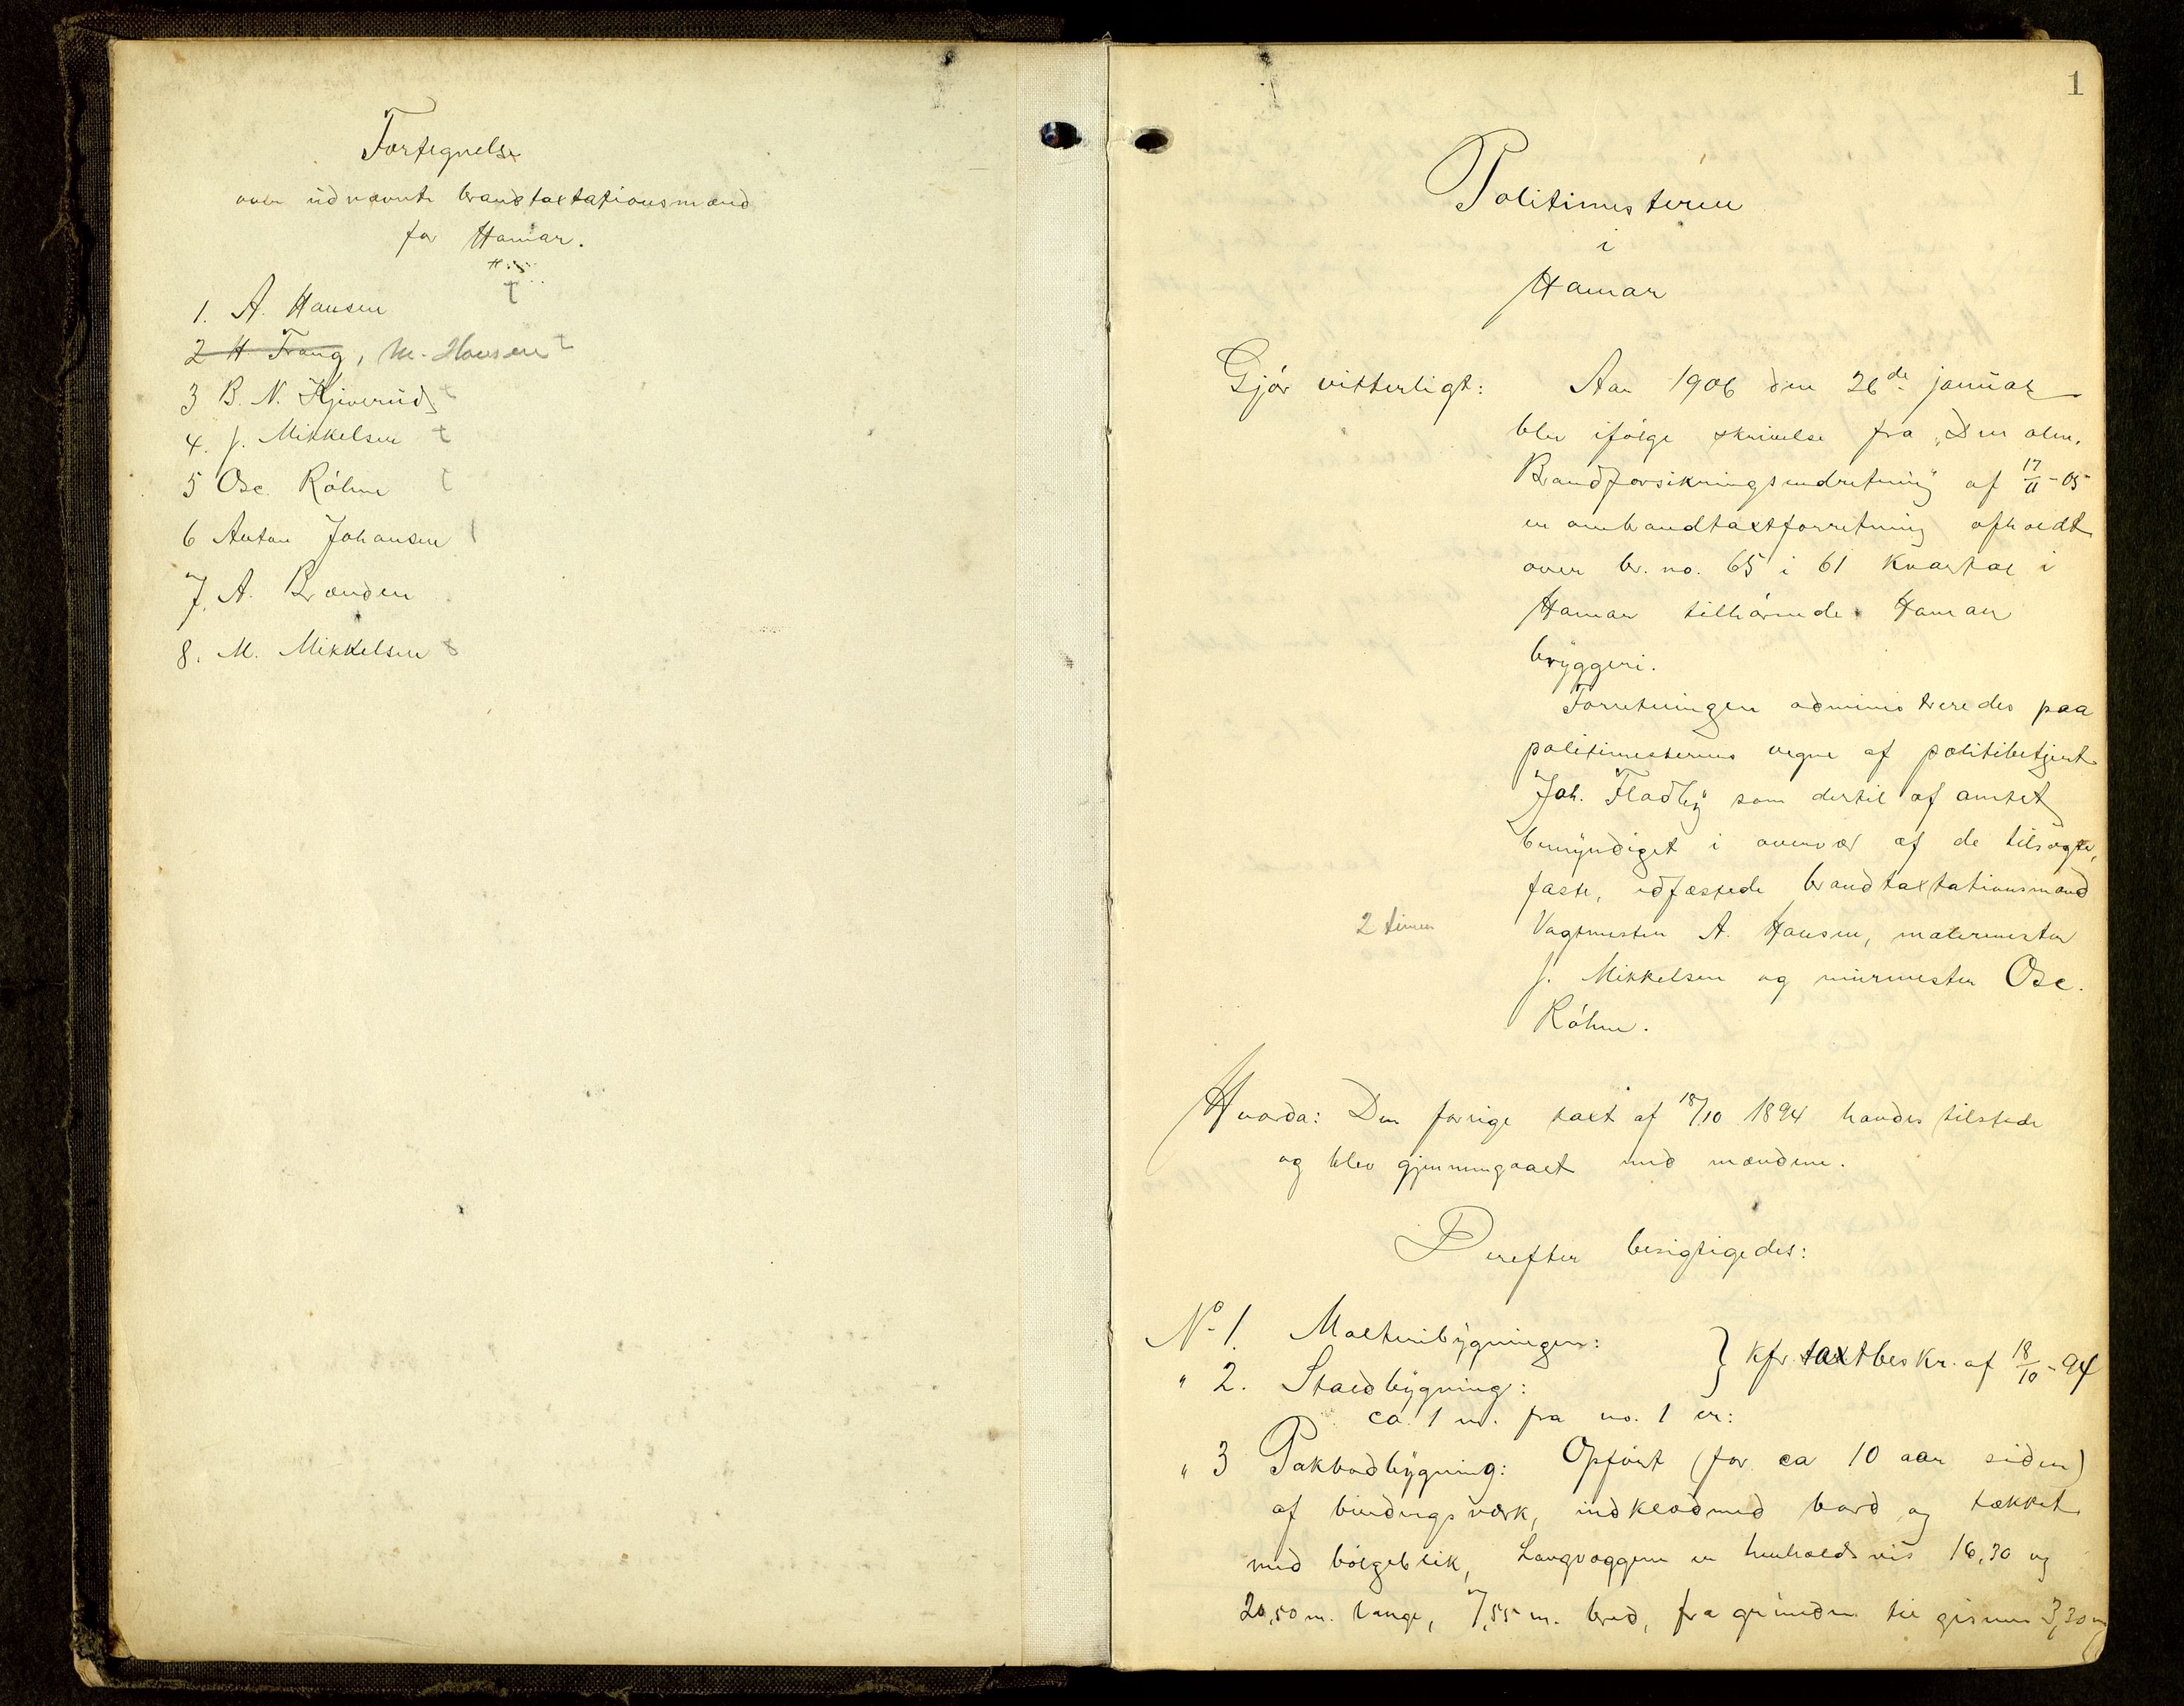 Fortegnelse
over udnævnte brandtaxtationsmænd
for Hamar.
1. A. Hansen
2 H. Frang, M. Hansen t
3 B. N. Kjiverud t
4. J. Mikkelsen t
5 Osc. Röhne t
6 Anton Johansen
7. A. Brænden
8. M. Mikkelsen
1
Politimesteren
i
Hamar
Gjør vitterligt: Aar 1906 den 26de januar
blev ifølge skrivelse fra „Den alm.
Brandforsikringsindretning" af 17/11-05
en ombrandtaxtforretning afholdt
over br. no. 65 i 61 kvartal i
Hamar tilhørende Hamar
bryggeri.
Forretningen administreredes paa
politimesterens vegne af politibetjent
Joh. Fladby som dertil af amtet
bemyndiget i overvær af de tilsagte,
faste, edfæstede brandtaxtationsmænd
2 timer
Vagtmester A. Hansen, malermester
J. Mikkelsen og murmester Osc.
Röhne.
Hvorda: Den forrige taxt af 18/10 1894 havdes tilstede
og blev gjennemgaaet med mændene.
Derefter besigtigedes:
No 1. Malteribygningen:
" 2. Staldbygning: } kfr. taxtbeskr. af 18/10-94
ca. 1 m. fra no. 1 er:
" 3 Pakbodbygning: Opført (for ca 10 aar siden)
af bindingsværk, indklædmed bord og tækket
med bølgeblik, Langvæggene er henholdsvis 16,30 og
20,50 m. lange, 7,55 m. bred, fra grunden til gesims 3,30 m